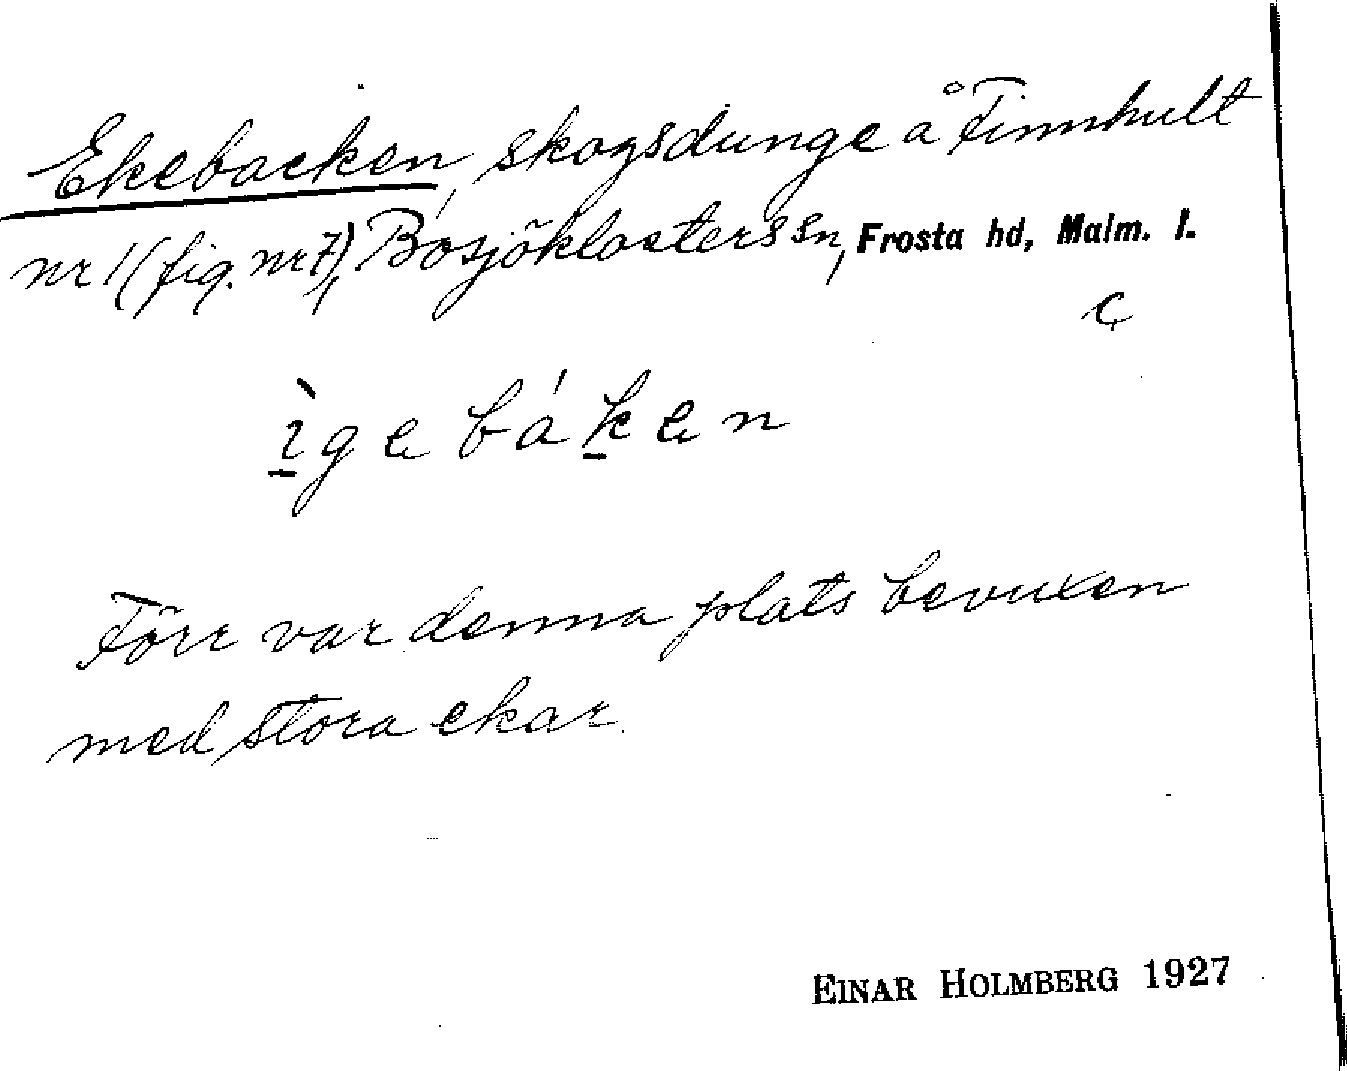 Ekebacken, skogsdunge å Finnhult
nr 1 (fig. nr 7), Bosjöklosters sn, Frosta hd, Malm. l.
c
ìgebáken
Förr var denna plats bevuxen
med stora ekar.
EINAR HOLMBERG 1927